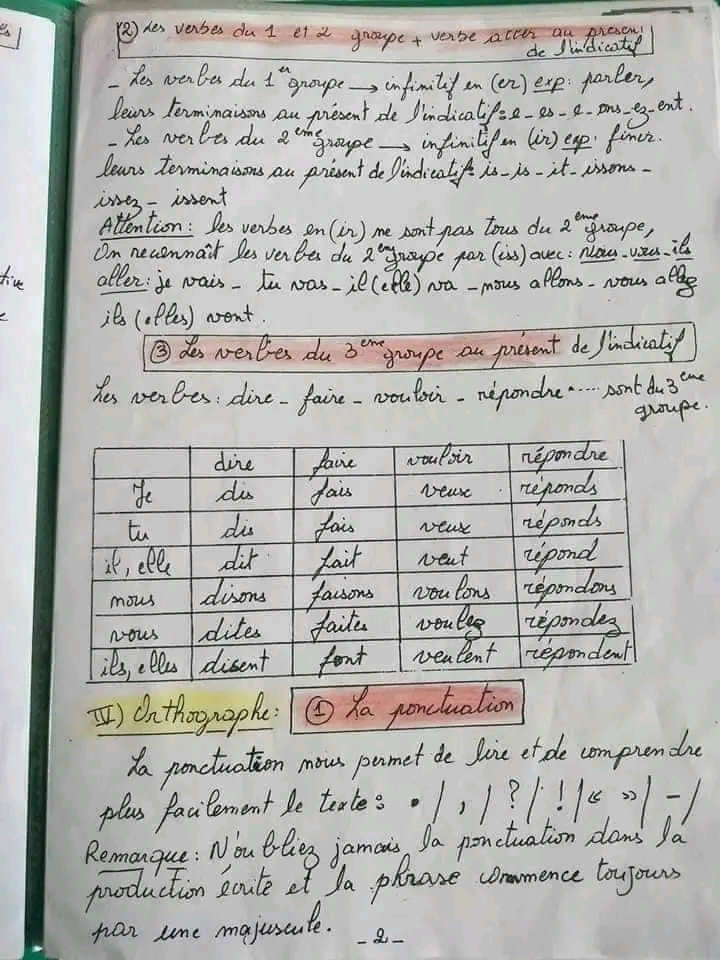 2) Les verbes du 1 et 2 groupe + verbe aller au présent
de l'indicatif
- Les verbes du 1er groupe → infinitif en (er) exp: parler,
leurs terminaisons au présent de l'indicatif: e - es - e - ons - ez - ent.
- Les verbes du 2eme groupe → infinitif en (ir) exp: finir.
leurs terminaisons au présent de l'indicatif: is - is - it - issons -
issez - issent
Attention: les verbes en (ir) ne sont pas tous du 2eme groupe,
On reconnaît les verbes du 2eme groupe par (iss) avec: Nous - vous - ils
aller: je vais - tu vas - il (elle) va - nous allons - vous allez
ils (elles) vont.
③ Les verbes du 3eme groupe au présent de l'indicatif
Les verbes: dire - faire - vouloir - répondre .... sont du 3eme
groupe.
dire faire vouloir répondre
Je dis fais veux réponds
tu dis fais veux réponds
il, elle dit fait veut répond
nous disons faisons voulons répondons
vous dites faites voulez répondez
ils, elles disent font veulent répondent
IV) Orthographe: ① La ponctuation
La ponctuation nous permet de lire et de comprendre
plus facilement le texte: . / , / ? / ! / « » / - /
Remarque: N'oubliez jamais la ponctuation dans la
production écrite et la phrase commence toujours
par une majuscule.
- 2 -